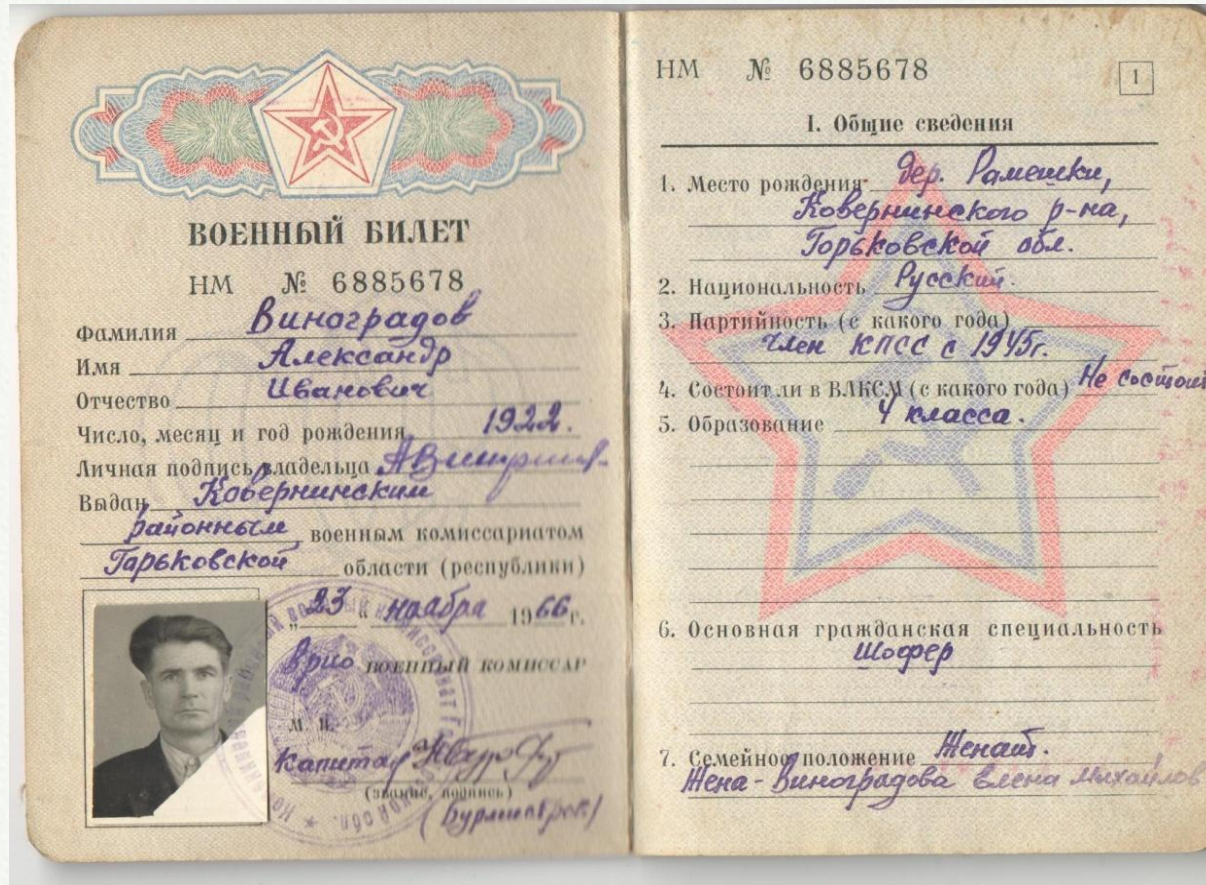 ВОЕННЫЙ БИЛЕТ
НМ № 6885678
Фамилия Виноградов
Имя Александр
Отчество Иванович
Число, месяц и год рождения 1922.
Личная подпись владельца
Выдан Ковернинским
районным военным комиссариатом
Горьковской области (республики)
„23" ноября 1966 г.
Врио ВОЕННЫЙ КОМИССАР
М. П.
Капитан
(звание, подпись)
НМ № 6885678
1
I. Общие сведения
1. Место рождения дер. Рамешки,
Ковернинского р-на,
Горьковской обл.
2. Национальность Русский.
3. Партийность (с какого года)
Член КПСС с 1945г.
4. Состоит ли в ВЛКСМ (с какого года) Не состоит
5. Образование 4 класса.
6. Основная гражданская специальность
Шофер
7. Семейное положение Женат.
Жена - Виноградова Елена Михайлов